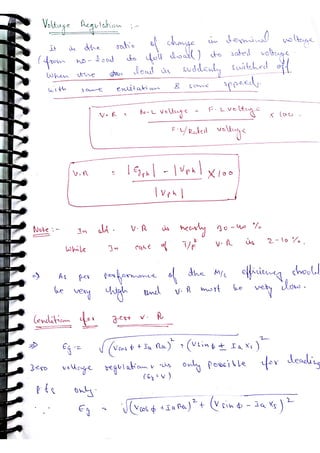 Voltage Regulation :-
is in the ratio of change in terminal voltage
(from no-load to full load) to rated voltage
when the load is suddenly switched off
with same excitation & same speed.
V.R = N-L Voltage - F.L Voltage × 100
F.L/Rated voltage
V.R = |Egph| - |Vph| × 100
|Vph|
Note :- In alt. V.R is nearly 30-40 %
while In case of T/f V.R is 2-10 %.
⇒ As per performance of the M/c efficiency should
be very high and V.R must be very low.
Condition for zero V.R
⇒ Eg = √(Vcosφ + IaRa)² + (Vsinφ ± IaXs)²
Zero voltage regulation is only possible for leading
(Eg=V)
P.f's only.
∴ Eg = √(Vcosφ + IaRa)² + (Vsinφ - IaXs)²